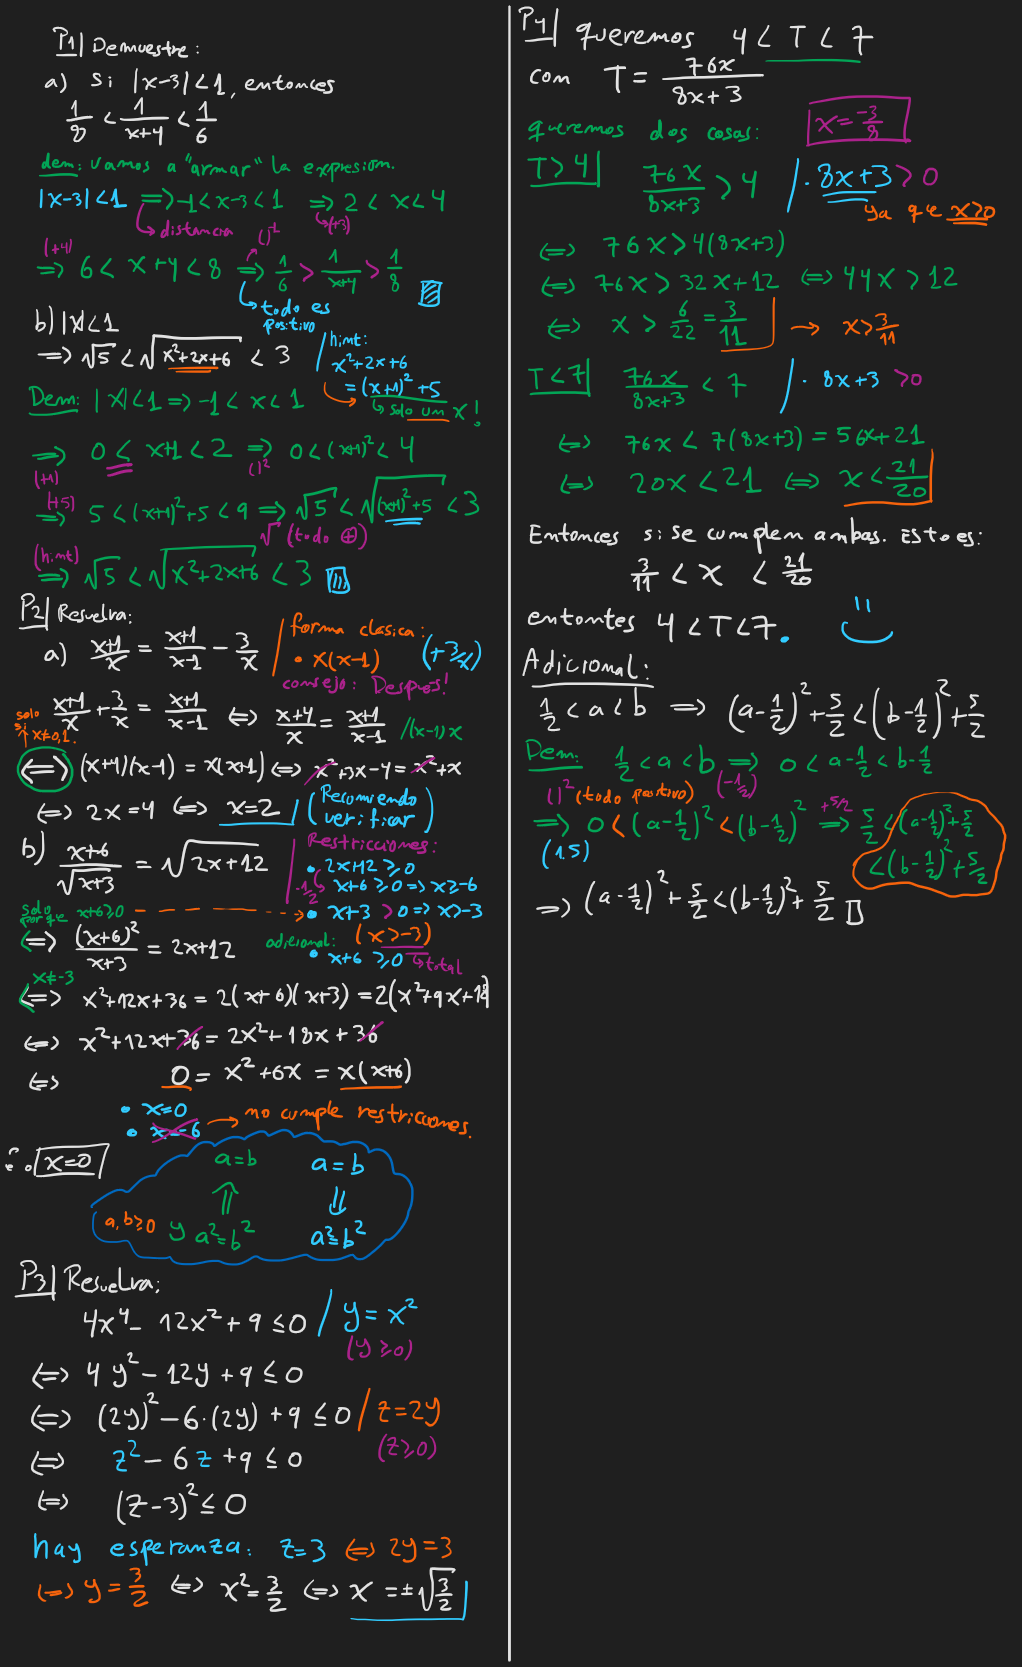 P1| Demuestre:
a) Si |x-3|<1, entonces
1/8 < 1/(x+4) < 1/6
dem: vamos a "armar" la expresion.
|x-3|<1 ⟹ -1<x-3<1 ⟹ 2<x<4
↳ distancia
↳(+3)
(+4) ⟹ 6< x+4<8 ⟹ 1/6 > 1/(x+4) > 1/8
( )^-1
↳ todo es positivo
b) |x|<1
⟹ √5 < √(x²+2x+6) < 3
/hint:
x²+2x+6
= (x+1)²+5
↳ solo un x!
Dem: |x|<1 ⟹ -1<x<1
⟹ 0≤x+1<2 ⟹ 0<(x+1)²<4
(+1)
( )²
(+5) ⟹ 5<(x+1)²+5<9 ⟹ √5 < √((x+1)²+5) < 3
√ (todo ⊕)
(hint) ⟹ √5 < √(x²+2x+6) < 3
P2| Resuelva:
a) (x+1)/x = (x+1)/(x-1) - 3/x
/ forma clasica:
• x(x-1)
(+3/x)
consejo: Despues!
(x+1)/x + 3/x = (x+1)/(x-1) ⟺ (x+4)/x = (x+1)/(x-1) /(x-1)x
solo si x≠0,1.
⟺ (x+4)(x-1) = x(x+1) ⟺ x²+3x-4 = x²+x
⟺ 2x=4 ⟺ x=2 (Recomiendo verificar)
b) (x+6)/√(x+3) = √(2x+12)
Restricciones:
• 2x+12 ≥0
·1/2 x+6≥0 ⟹ x≥-6
• x+3 >0 ⟹ x>-3
(x>-3)
↳ total
adicional:
• x+6 ≥0
solo porque x+6≥0
⟺ (x+6)²/(x+3) = 2x+12
x≠-3
⟺ x²+12x+36 = 2(x+6)(x+3) = 2(x²+9x+18)
⟺ x²+12x+36 = 2x²+18x+36
⟺ 0 = x²+6x = x(x+6)
• x=0
• x=-6 → no cumple restricciones.
∴ x=0
a=b a=b
⇑ ⇓
a,b≥0 y a²=b² a²=b²
P3| Resuelva:
4x⁴- 12x²+9 ≤0 / y=x²
(y≥0)
⟺ 4y²-12y+9≤0
⟺ (2y)²-6·(2y)+9≤0 / z=2y
(z≥0)
⟺ z²-6z+9≤0
⟺ (z-3)²≤0
hay esperanza: z=3 ⟺ 2y=3
⟺ y=3/2 ⟺ x²=3/2 ⟺ x=±√(3/2)
P4| queremos 4<T<7
con T = 76x/(8x+3)
queremos dos cosas:
x=-3/8
T>4| 76x/(8x+3) > 4 /· 8x+3>0
ya que x>0
⟺ 76x>4(8x+3)
⟺ 76x>32x+12 ⟺ 44x>12
⟺ x > 6/22 = 3/11 → x>3/11
T<7| 76x/(8x+3) < 7 /· 8x+3 >0
⟺ 76x < 7(8x+3) = 56x+21
⟺ 20x<21 ⟺ x<21/20
Entonces si se cumplen ambas. Esto es:
3/11 < x < 21/20
entontes 4<T<7.
Adicional:
1/2<a<b ⟹ (a-1/2)²+5/2<(b-1/2)²+5/2
Dem: 1/2<a<b ⟹ 0<a-1/2<b-1/2
(-1/2)
( )² (todo positivo)
⟹ 0<(a-1/2)²<(b-1/2)² ⟹ 5/2<(a-1/2)²+5/2
+5/2
<(b-1/2)²+5/2
(1.5)
⟹ (a-1/2)²+5/2<(b-1/2)²+5/2